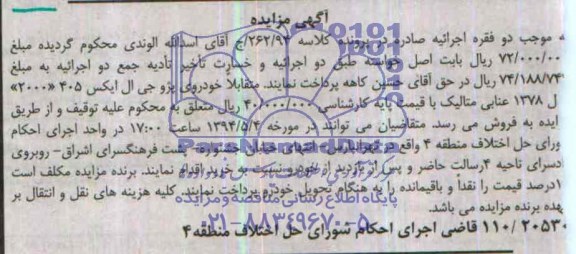 آگهی مزایده
ه موجب دو فقره اجرائیه صادره در پرونده کلاسه ۲۶۲/۹۲/ج آقای اسدالله الوندی محکوم گردیده مبلغ
۷۲/۰۰۰/۰۰ ریال بابت اصل خواسته طبق دو اجرائیه و خسارت تأخیر تأدیه جمع دو اجرائیه به مبلغ
۷۴/۱۸۸/۷۴ ریال در حق آقای حسین کاهه پرداخت نمایند. متقابلا خودروی پژو جی ال ایکس ۴۰۵ «۲۰۰۰»
ل ۱۳۷۸ عنابی متالیک با قیمت پایه کارشناسی ۴۰/۰۰۰/۰۰۰ ریال متعلق به محکوم علیه توقیف و از طریق
ایده به فروش می رسد. متقاضیان می توانند در مورخه ۱۳۹۴/۵/۴ ساعت ۱۷:۰۰ در واحد اجرای احکام
ورای حل اختلاف منطقه ۴ واقع در تهرانپارس انتهای خیابان پشت فرهنگسرای اشراق- روبروی
ادسرای ناحیه ۴ رسالت حاضر و پس از بازدید از خودرو نسبت به خرید اقدام نمایند. برنده مزایده مکلف است
۱درصد قیمت را نقداً و باقیمانده را به هنگام تحویل خودرو پرداخت نمایند. کلیه هزینه های نقل و انتقال بر
هده برنده مزایده می باشد.
۱۱۰/۲۰۵۳۰ قاضی اجرای احکام شورای حل اختلاف منطقه ۴
پایگاه اطلاع رسانی مناقصه و مزایده
۰۲۱-۸۸۳۴۹۶۷۰-۵